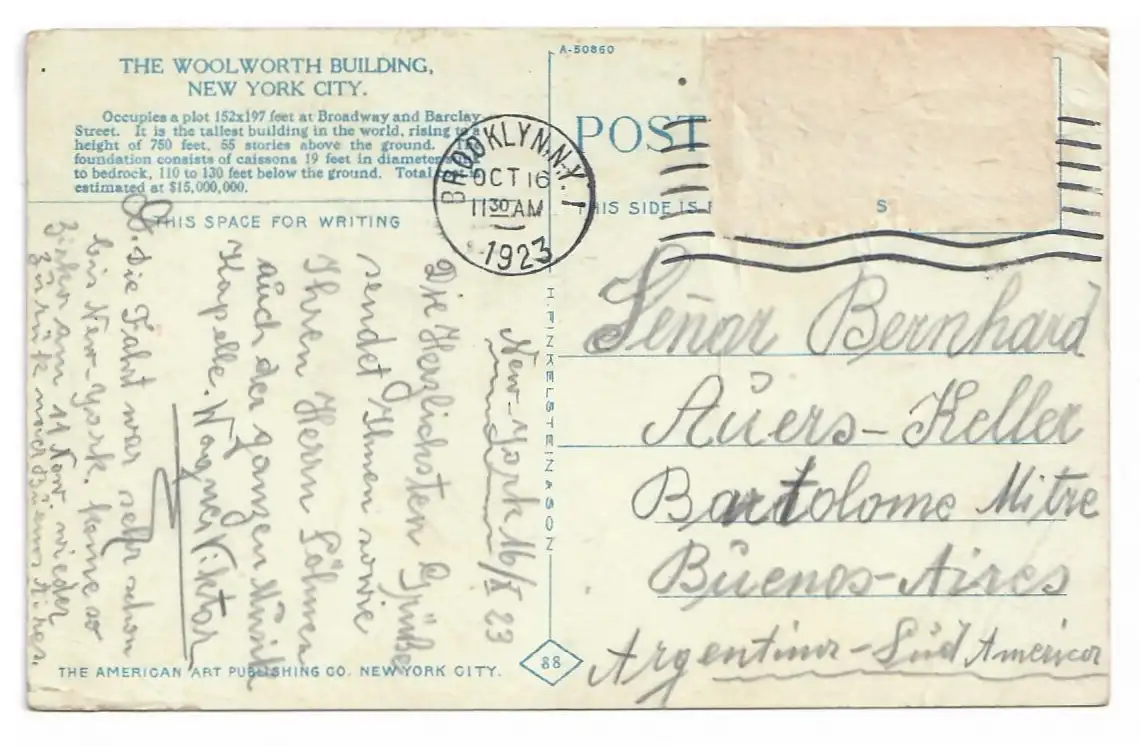 THE WOOLWORTH BUILDING,
NEW YORK CITY.
Occupies a plot 152x197 feet at Broadway and Barclay
Street. It is the tallest building in the world, rising to a
height of 750 feet, 55 stories above the ground.
foundation consists of caissons 19 feet in diameter
to bedrock, 110 to 130 feet below the ground. Total
estimated at $15,000,000.
THIS SPACE FOR WRITING
A-50860
POST
THIS SIDE IS
S
BROOKLYN, N.Y. 1
OCT 16
11 30 AM
1923
New-York 16/X 23
Die Herzlichsten Grüße
sendet Ihnen sowie
Ihren Herrn Söhnen
auch der ganzen Musik
Kapelle. Wagner Viktor
Die Fahrt war sehr schön
bis New-York. Komme so
zirka am 11 Nov wieder
zurük nach Buenos Aires.
H. FINKELSTEIN & SON
Señor Bernhard
Aŭers-Keller
Bartolome Mitre
Bŭenos-Aires
Argentina-Süd America
THE AMERICAN ART PUBLISHING CO. NEW YORK CITY.
88